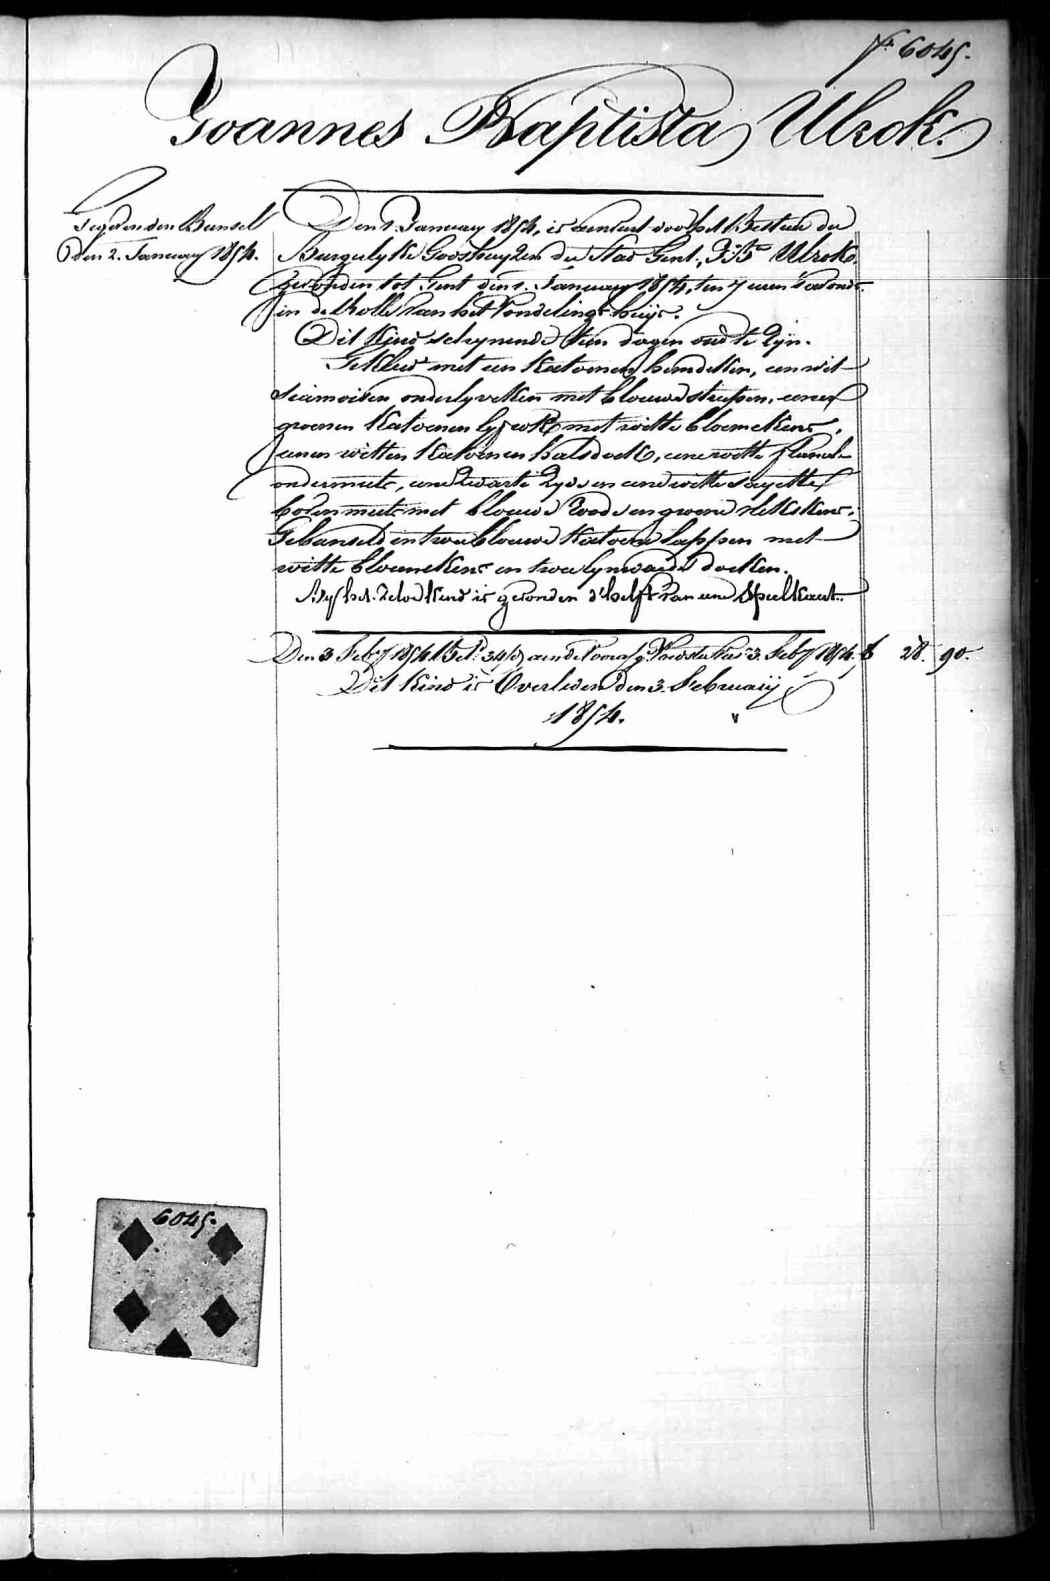 N.º 6045.
Joannes Baptista Ulrok.
Gegeven den Bunsel
den 2. January 1854.
Den 1. January 1854, is aenveert door het Bestuer der
Burgelyke Godshuyzen der Stad Gent, J. Bta Ulrok.
gevonden tot Gent den 1. January 1854, ten 7 uren 's avonds
in de Rolle van het Vondelings-huys.
Dit Kind schynende thien dagen oud te zyn.
Gekleed met een katoenen hemdeken, een wit
siamoisen onderlyveken met blouwe streepen, eenen
groenen katoenen lyfrok met witte bloemekens,
eenen witten katoenen halsdoek, eene witte flanele
ondermuts, eene zwarte zyde en eene witte sayette
bovenmuts met blouwe roode en groene vlekskens.
Gebunseld in twee blouwe katoene lappen met
witte bloemekens en twee lynwaede doeken.
By het zelve Kind is gevonden d'helft van eene Speelkaert.
Den 3 Feby 1854 Bet. 34 d. aen de 3 Feby 1854, f 28. 90.
Dit Kind is Overleden den 3. February
1854.
6045.